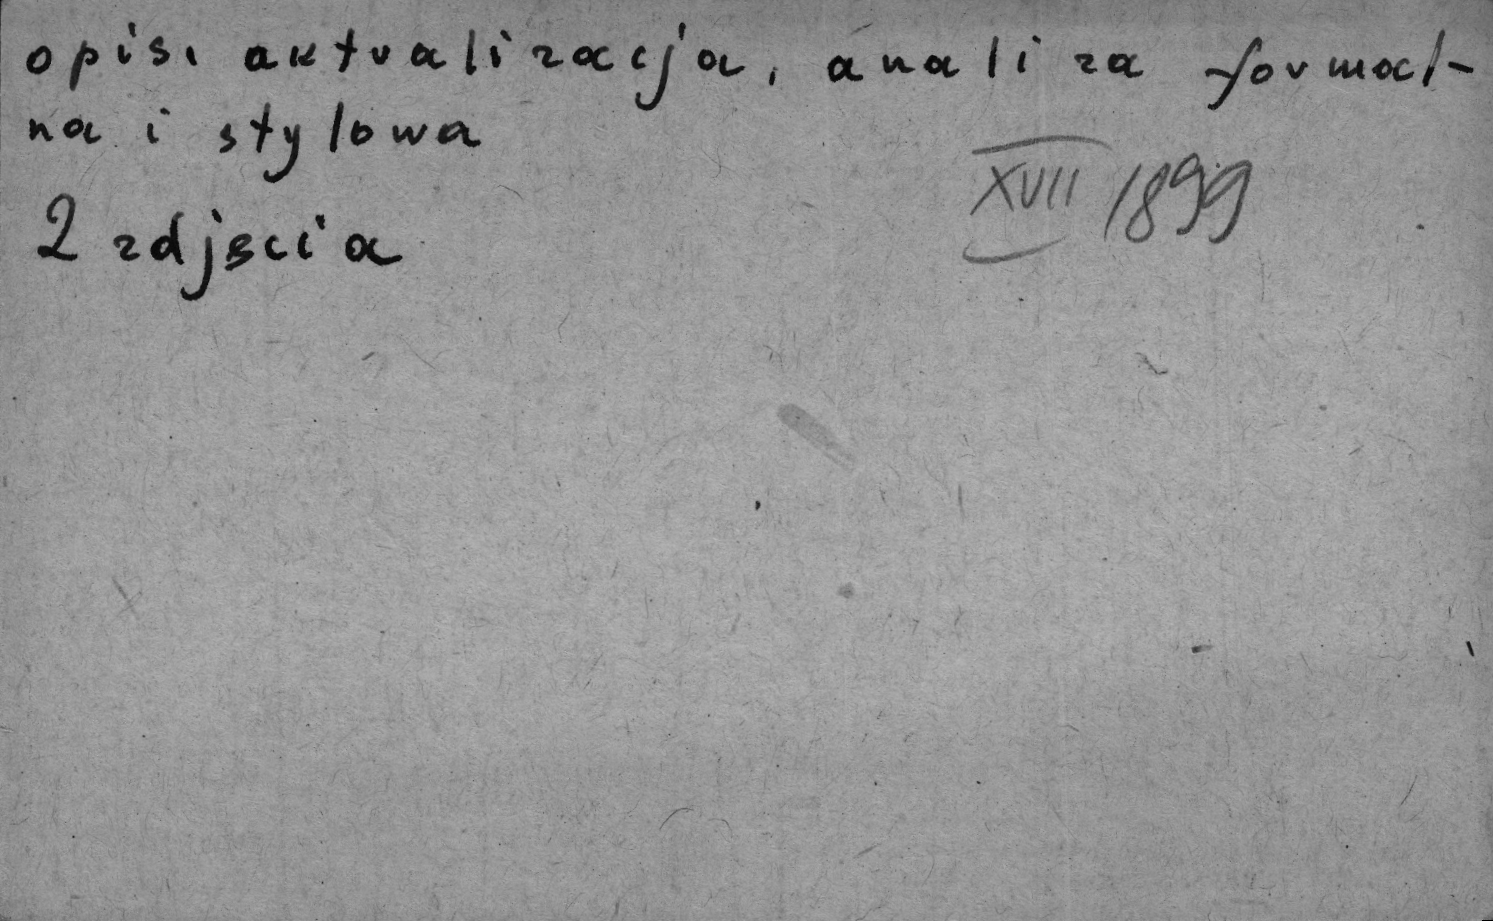 opis, aktualizacja, analiza formal-
na i stylowa
XVII 1899
2 zdjęcia